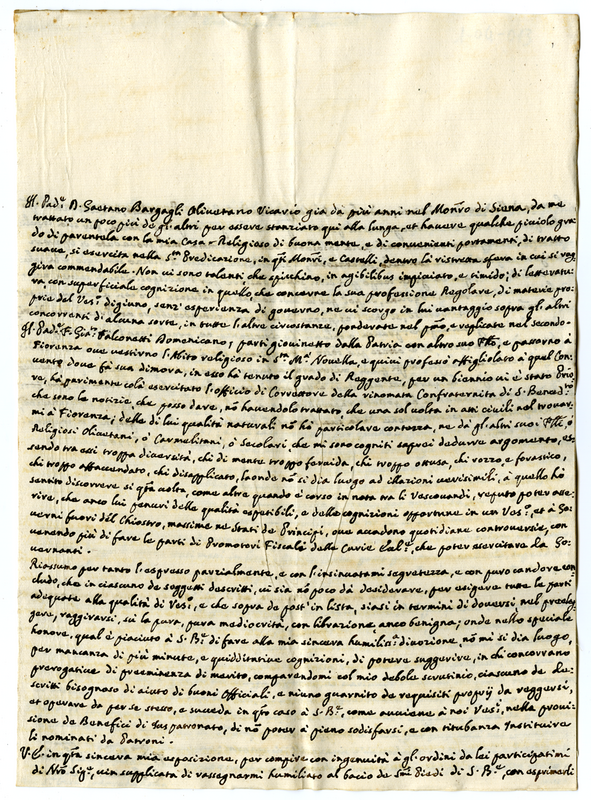 Il Pad.e D. Gaetano Bargagli Olivetano Vicario già da più anni nel Mon.ro di Siena, da me
trattato un poco più de gli altri per essere stanziato qui alla lunga, et havere qualche picciolo gra-
do di parentela con la mia Casa. Religioso di buona mente, e di convenienti portamenti, di tratto
suave, si esercita nella S.ta Predicazione, in q.ti Mon.ri, e Castelli, dentro la ristretta sfera in cui si rag-
gira commendabile. Non vi sono talenti che spicchino, in agibilibus impicciato, e timido; di letteratu-
ra con superficiale cognizione in quello che concerne la sua professione Regolare, di materie pro-
prie del Ves.o digiuno, senz'esperienza di governo, ne vi scorgo in lui vantaggio sopra gli altri
concorrenti di alcuna sorte, in tutte l'altre circostanze, ponderate nel p.mo, e replicate nel secondo.
Il Pad.e F. Falconetti Domenicano, partì giovinetto dalla Patria con altro suo Fr̃llo, e passorno à
Fiorenza ove vestirno l'Abito religioso in S.ta M.a Novella, e quivi professò affigliolato à quel Con-
vento dove fà sua dimora, in esso hà tenuto il grado di Reggente, per un biennio vi è stato Prio-
re, hà parimente colà esercitato l'officio di Correttore della rinomata Confraternita di S. Bened.to
che sono le notizie che posso dare, nõ havendolo trattato, che una sol volta in atti civili nel trovar-
mi à Fiorenza; delle di lui qualità naturali nõ hò particolare contezza, ne dà gl'altri suoi Fr̃lli, ò
Religiosi Olivetani, ò Carmelitani, ò Secolari che mi sono cogniti saprei dedurre argomento, es-
sendo tra essi troppa diversità, chi di mente troppo fervida, chi troppo ottusa, chi rozzo, e forastico,
chi troppo attaccendato, chi disapplicato, laonde nõ si dia luogo ad illazioni verisimili, à quello hò
sentito discorrere si q.ta volta, come altre quando è corso in nota tra li Vescovandi, reputo poter asse-
rire, che anco lui penuri delle qualità espetibili, e delle cognizioni opportune in un Ves.o, et à Go-
verni fuori del Chiostro, massime ne Stati de Principi, ove accadono quotidiane controversie, con-
venendo più di fare le parti di Promotori Fiscali delle Curie Laical.i, che poter esercitare da Go-
vernanti.
Riassumo per tanto l'espresso parzialmente, e con l'insinuatami segretezza, e con puro candore con-
cludo, che in ciascuno de soggetti descritti, vi sia nõ poco dà desiderare, per esigere tutte le parti
adequate alla qualità di Ves.o, e che sopra de post'in lista, siasi in termini di doversi nel prescel-
gere, raggirarsi, sù la pura, pura mediocrità, con librazione anco benigna; onde nello speciale
honore, qual è piaciuto à S. B.e di fare alla mia sincera humilis.a divozione, nõ mi si dia luogo,
per mancanza di più minute, e quidditative cognizioni, di potere suggerire, in chi concorrano
prerogative di preeminenza di merito, comparendomi col mio debole scrutinio, ciascuno de de-
scritti bisognoso di aiuto di buoni Officiali, e niuno guarnito de requisiti proprij da reggersi,
et operare da per se stesso, e succeda in q.to caso à S. B.e, come avviene à noi Ves.i, nella provi-
sione de Benefici di Jus patronato, di nõ poter à pieno sodisfarsi, e con titubanza Instituire
li nominati da Patroni.
V. E. in q.ta sincera mia esposizione, per compire con ingenuità à gl'ordini da lei participatimi
di Nr̃o Sig.e, vien supplicata di rassegnarmi humiliato al bacio de S.mi Piedi di S. B.e, con esprimerli